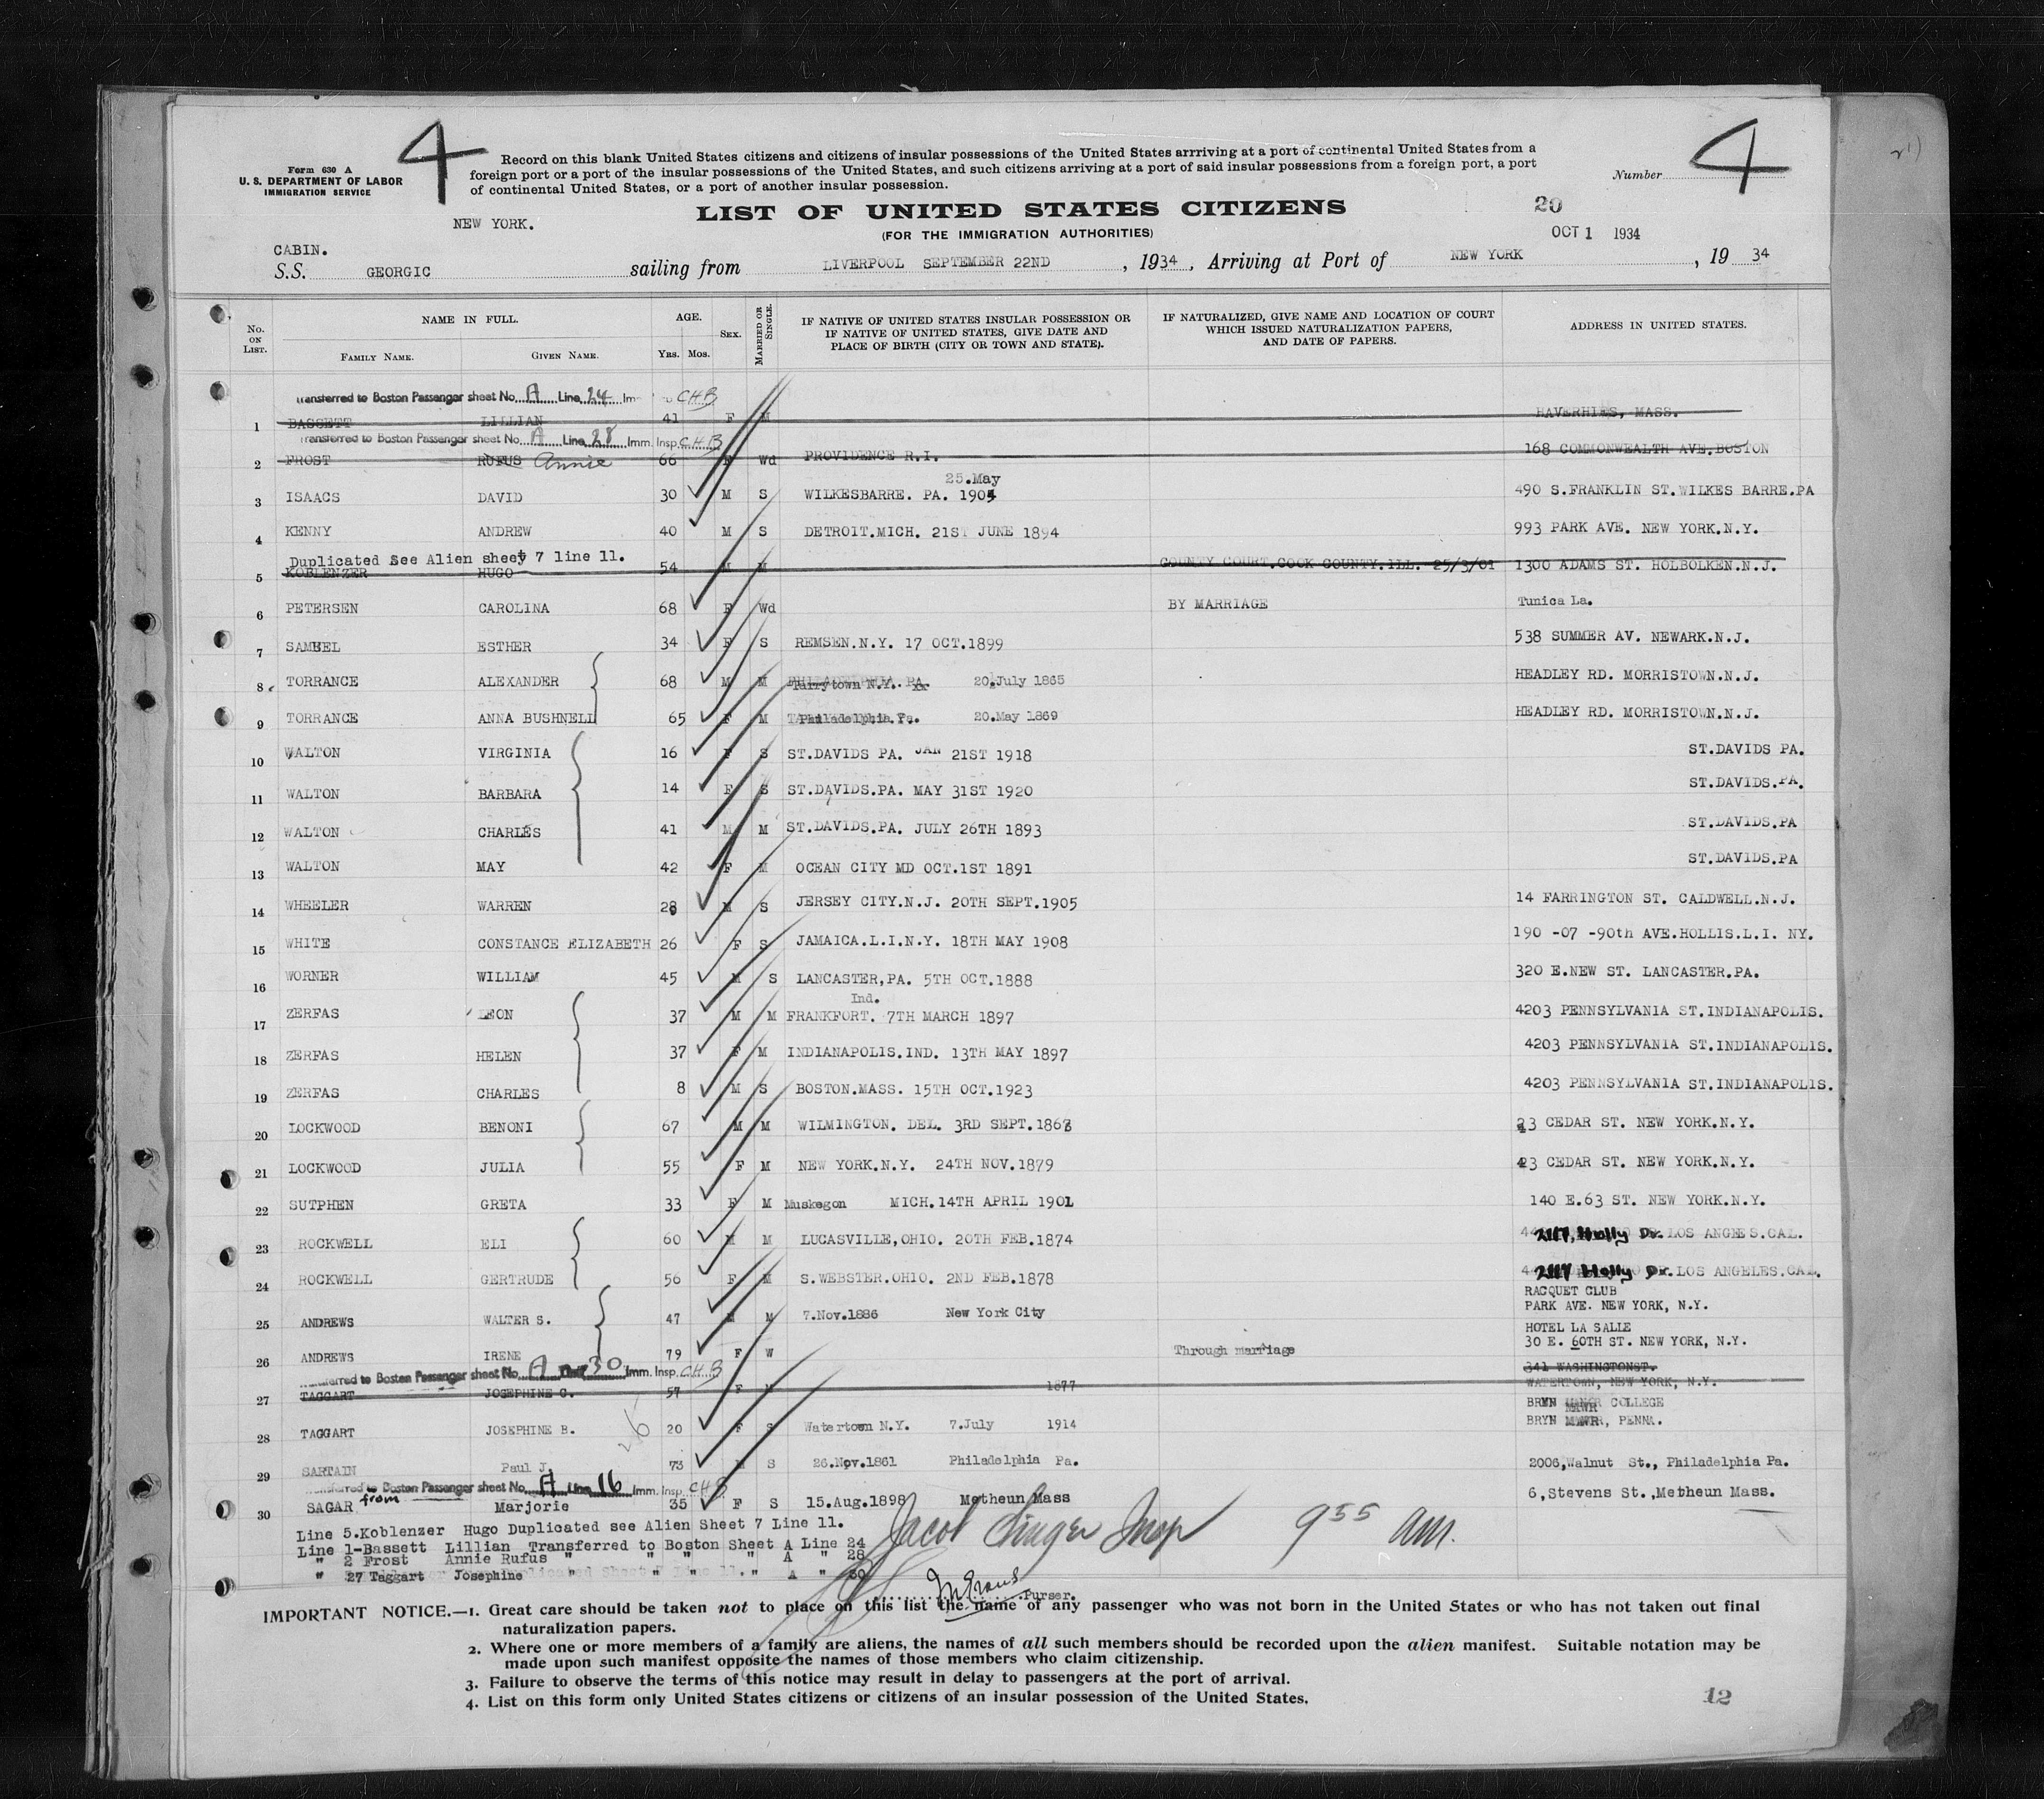 4
4
Form 630 A
U. S. DEPARTMENT OF LABOR
IMMIGRATION SERVICE
Record on this blank United States citizens and citizens of insular possessions of the United States arrriving at a port of continental United States from a
foreign port or a port of the insular possessions of the United States, and such citizens arriving at a port of said insular possessions from a foreign port, a port
of continental United States, or a port of another insular possession.
Number
LIST OF UNITED STATES CITIZENS
20
NEW YORK.
(FOR THE IMMIGRATION AUTHORITIES)
OCT 1 1934
CABIN.
S.S. GEORGIC sailing from LIVERPOOL SEPTEMBER 22ND, 1934, Arriving at Port of NEW YORK, 19 34
No. ON LIST.
NAME IN FULL.
FAMILY NAME. GIVEN NAME.
AGE.
YRS. MOS.
SEX.
MARRIED OR SINGLE.
IF NATIVE OF UNITED STATES INSULAR POSSESSION OR
IF NATIVE OF UNITED STATES, GIVE DATE AND
PLACE OF BIRTH (CITY OR TOWN AND STATE).
IF NATURALIZED, GIVE NAME AND LOCATION OF COURT
WHICH ISSUED NATURALIZATION PAPERS,
AND DATE OF PAPERS.
ADDRESS IN UNITED STATES.
Transferred to Boston Passenger sheet No. A Line 24 Imm CHB
1 BASSETT LILLIAN 41 F M HAVERHILL, MASS.
Transferred to Boston Passenger sheet No. A Line 28 Imm. Insp. CHB
2 FROST RUFUS Annie 66 F Wd PROVIDENCE R.I. 168 COMMONWEALTH AVE.BOSTON
25.May
3 ISAACS DAVID 30 M S WILKESBARRE. PA. 1904 490 S.FRANKLIN ST.WILKES BARRE.PA
4 KENNY ANDREW 40 M S DETROIT.MICH. 21ST JUNE 1894 993 PARK AVE. NEW YORK.N.Y.
Duplicated See Alien sheet 7 line 11.
5 KOBLENZER HUGO 54 M M COUNTY COURT.COOK COUNTY.ILL. 25/3/01 1300 ADAMS ST. HOLBOLKEN.N.J.
6 PETERSEN CAROLINA 68 F Wd BY MARRIAGE Tunica La.
7 SAMUEL ESTHER 34 F S REMSEN.N.Y. 17 OCT.1899 538 SUMMER AV. NEWARK.N.J.
8 TORRANCE ALEXANDER 68 M M PHILADELPHIA PA Tarrytown N.Y. 20.July 1865 HEADLEY RD. MORRISTOWN.N.J.
9 TORRANCE ANNA BUSHNELL 65 F M Philadelphia.Pa. 20.May 1869 HEADLEY RD. MORRISTOWN.N.J.
10 WALTON VIRGINIA 16 F S ST.DAVIDS PA. JAN 21ST 1918 ST.DAVIDS PA.
11 WALTON BARBARA 14 F S ST.DAVIDS.PA. MAY 31ST 1920 ST.DAVIDS.PA.
12 WALTON CHARLES 41 M M ST.DAVIDS.PA. JULY 26TH 1893 ST.DAVIDS.PA
13 WALTON MAY 42 F M OCEAN CITY MD OCT.1ST 1891 ST.DAVIDS.PA
14 WHEELER WARREN 28 M S JERSEY CITY.N.J. 20TH SEPT.1905 14 FARRINGTON ST. CALDWELL.N.J.
15 WHITE CONSTANCE ELIZABETH 26 F S JAMAICA.L.I.N.Y. 18TH MAY 1908 190 -07 -90th AVE.HOLLIS.L.I. NY.
16 WORNER WILLIAM 45 M S LANCASTER,PA. 5TH OCT.1888 320 E.NEW ST. LANCASTER.PA.
Ind.
17 ZERFAS LEON 37 M M FRANKFORT. 7TH MARCH 1897 4203 PENNSYLVANIA ST.INDIANAPOLIS.
18 ZERFAS HELEN 37 F M INDIANAPOLIS.IND. 13TH MAY 1897 4203 PENNSYLVANIA ST.INDIANAPOLIS.
19 ZERFAS CHARLES 8 M S BOSTON.MASS. 15TH OCT.1923 4203 PENNSYLVANIA ST.INDIANAPOLIS.
20 LOCKWOOD BENONI 67 M M WILMINGTON. DEL. 3RD SEPT. 23 CEDAR ST. NEW YORK.N.Y.
21 LOCKWOOD JULIA 55 F M NEW YORK.N.Y. 24TH NOV.1879 23 CEDAR ST. NEW YORK.N.Y.
22 SUTPHEN GRETA 33 F M Muskegon MICH.14TH APRIL 1901 140 E.63 ST. NEW YORK.N.Y.
23 ROCKWELL ELI 60 M M LUCASVILLE,OHIO. 20TH FEB.1874 2117, Holly Dr. LOS ANGLES.CAL.
24 ROCKWELL GERTRUDE 56 F M S.WEBSTER.OHIO. 2ND FEB.1878 2117 Holly Dr. LOS ANGELES.CAL.
RACQUET CLUB
25 ANDREWS WALTER S. 47 M M 7.Nov.1886 New York City PARK AVE. NEW YORK, N.Y.
HOTEL LA SALLE
26 ANDREWS IRENE 79 F W Through marriage 30 E. 60TH ST. NEW YORK, N.Y.
Transferred to Boston Passenger sheet No. A Line 30 Imm. Insp. CHB
341 WASHINGTONST.
27 TAGGART JOSEPHINE C. 57 F M 1877 WATERTOWN, NEW YORK, N.Y.
BRYN MAWR COLLEGE
28 TAGGART JOSEPHINE B. 20 F S Watertown N.Y. 7.July 1914 BRYN MAWR, PENNA.
29 SARTAIN Paul J. 73 M S 26.Nov.1861 Philadelphia Pa. 2006,Walnut St., Philadelphia Pa.
Transferred to Boston Passenger sheet No. A Line 16 Imm. Insp. CHB
30 SAGAR from Marjorie 35 F S 15.Aug.1898 Metheun Mass 6,Stevens St.,Metheun Mass.
Line 5.Koblenzer Hugo Duplicated see Alien Sheet 7 Line 11.
Line 1-Bassett Lillian Transferred to Boston Sheet A Line 24
" 2 Frost Annie Rufus " " " " A " 28
" 27 Taggart Josephine " " " " A " 30
Jacob Singer Insp 9 55 am.
Purser.
IMPORTANT NOTICE.—1. Great care should be taken not to place on this list the name of any passenger who was not born in the United States or who has not taken out final
naturalization papers.
2. Where one or more members of a family are aliens, the names of all such members should be recorded upon the alien manifest. Suitable notation may be
made upon such manifest opposite the names of those members who claim citizenship.
3. Failure to observe the terms of this notice may result in delay to passengers at the port of arrival.
4. List on this form only United States citizens or citizens of an insular possession of the United States.
12